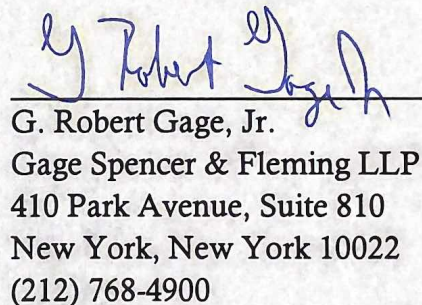 G Robert Gage Jr
G. Robert Gage, Jr.
Gage Spencer & Fleming LLP
410 Park Avenue, Suite 810
New York, New York 10022
(212) 768-4900